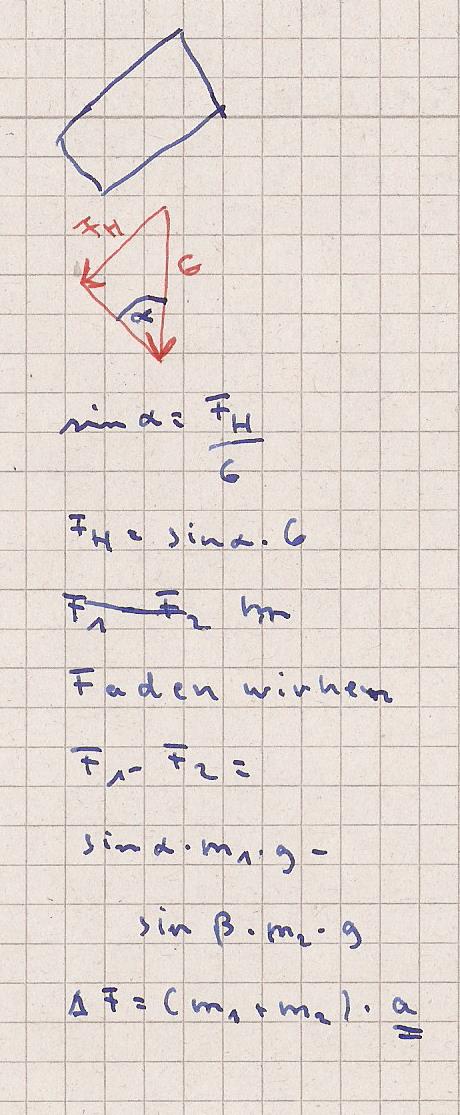 F_H
G
α
sin α = F_H / G
F_H = sin α · G
F_1 F_2 im
Faden wirken
F_1 - F_2 =
sin α · m_1 · g -
sin β · m_2 · g
Δ F = (m_1 + m_2) · a